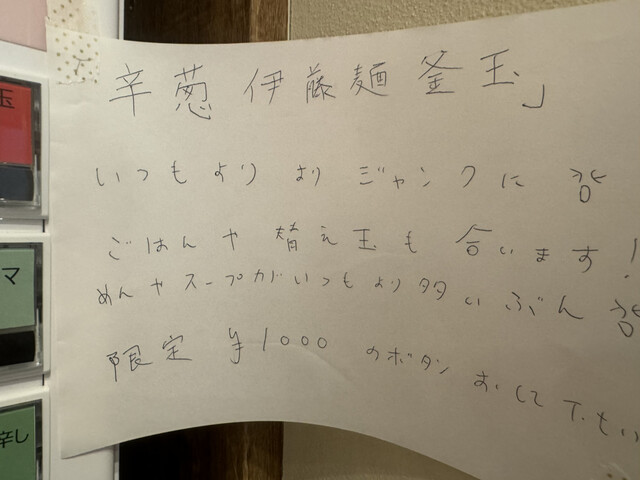 辛葱 伊藤麺 釜玉」
いつもより よりジャンクに
ごはんや替え玉も合います!
めんやスープがいつもより多いぶん
限定 ¥1000 のボタン おして下さい
玉
マ
辛し